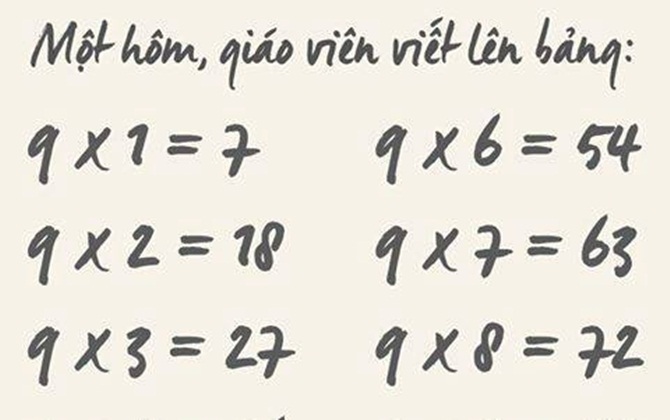 Một hôm, giáo viên viết lên bảng:
9 x 1 = 7 9 x 6 = 54
9 x 2 = 18 9 x 7 = 63
9 x 3 = 27 9 x 8 = 72